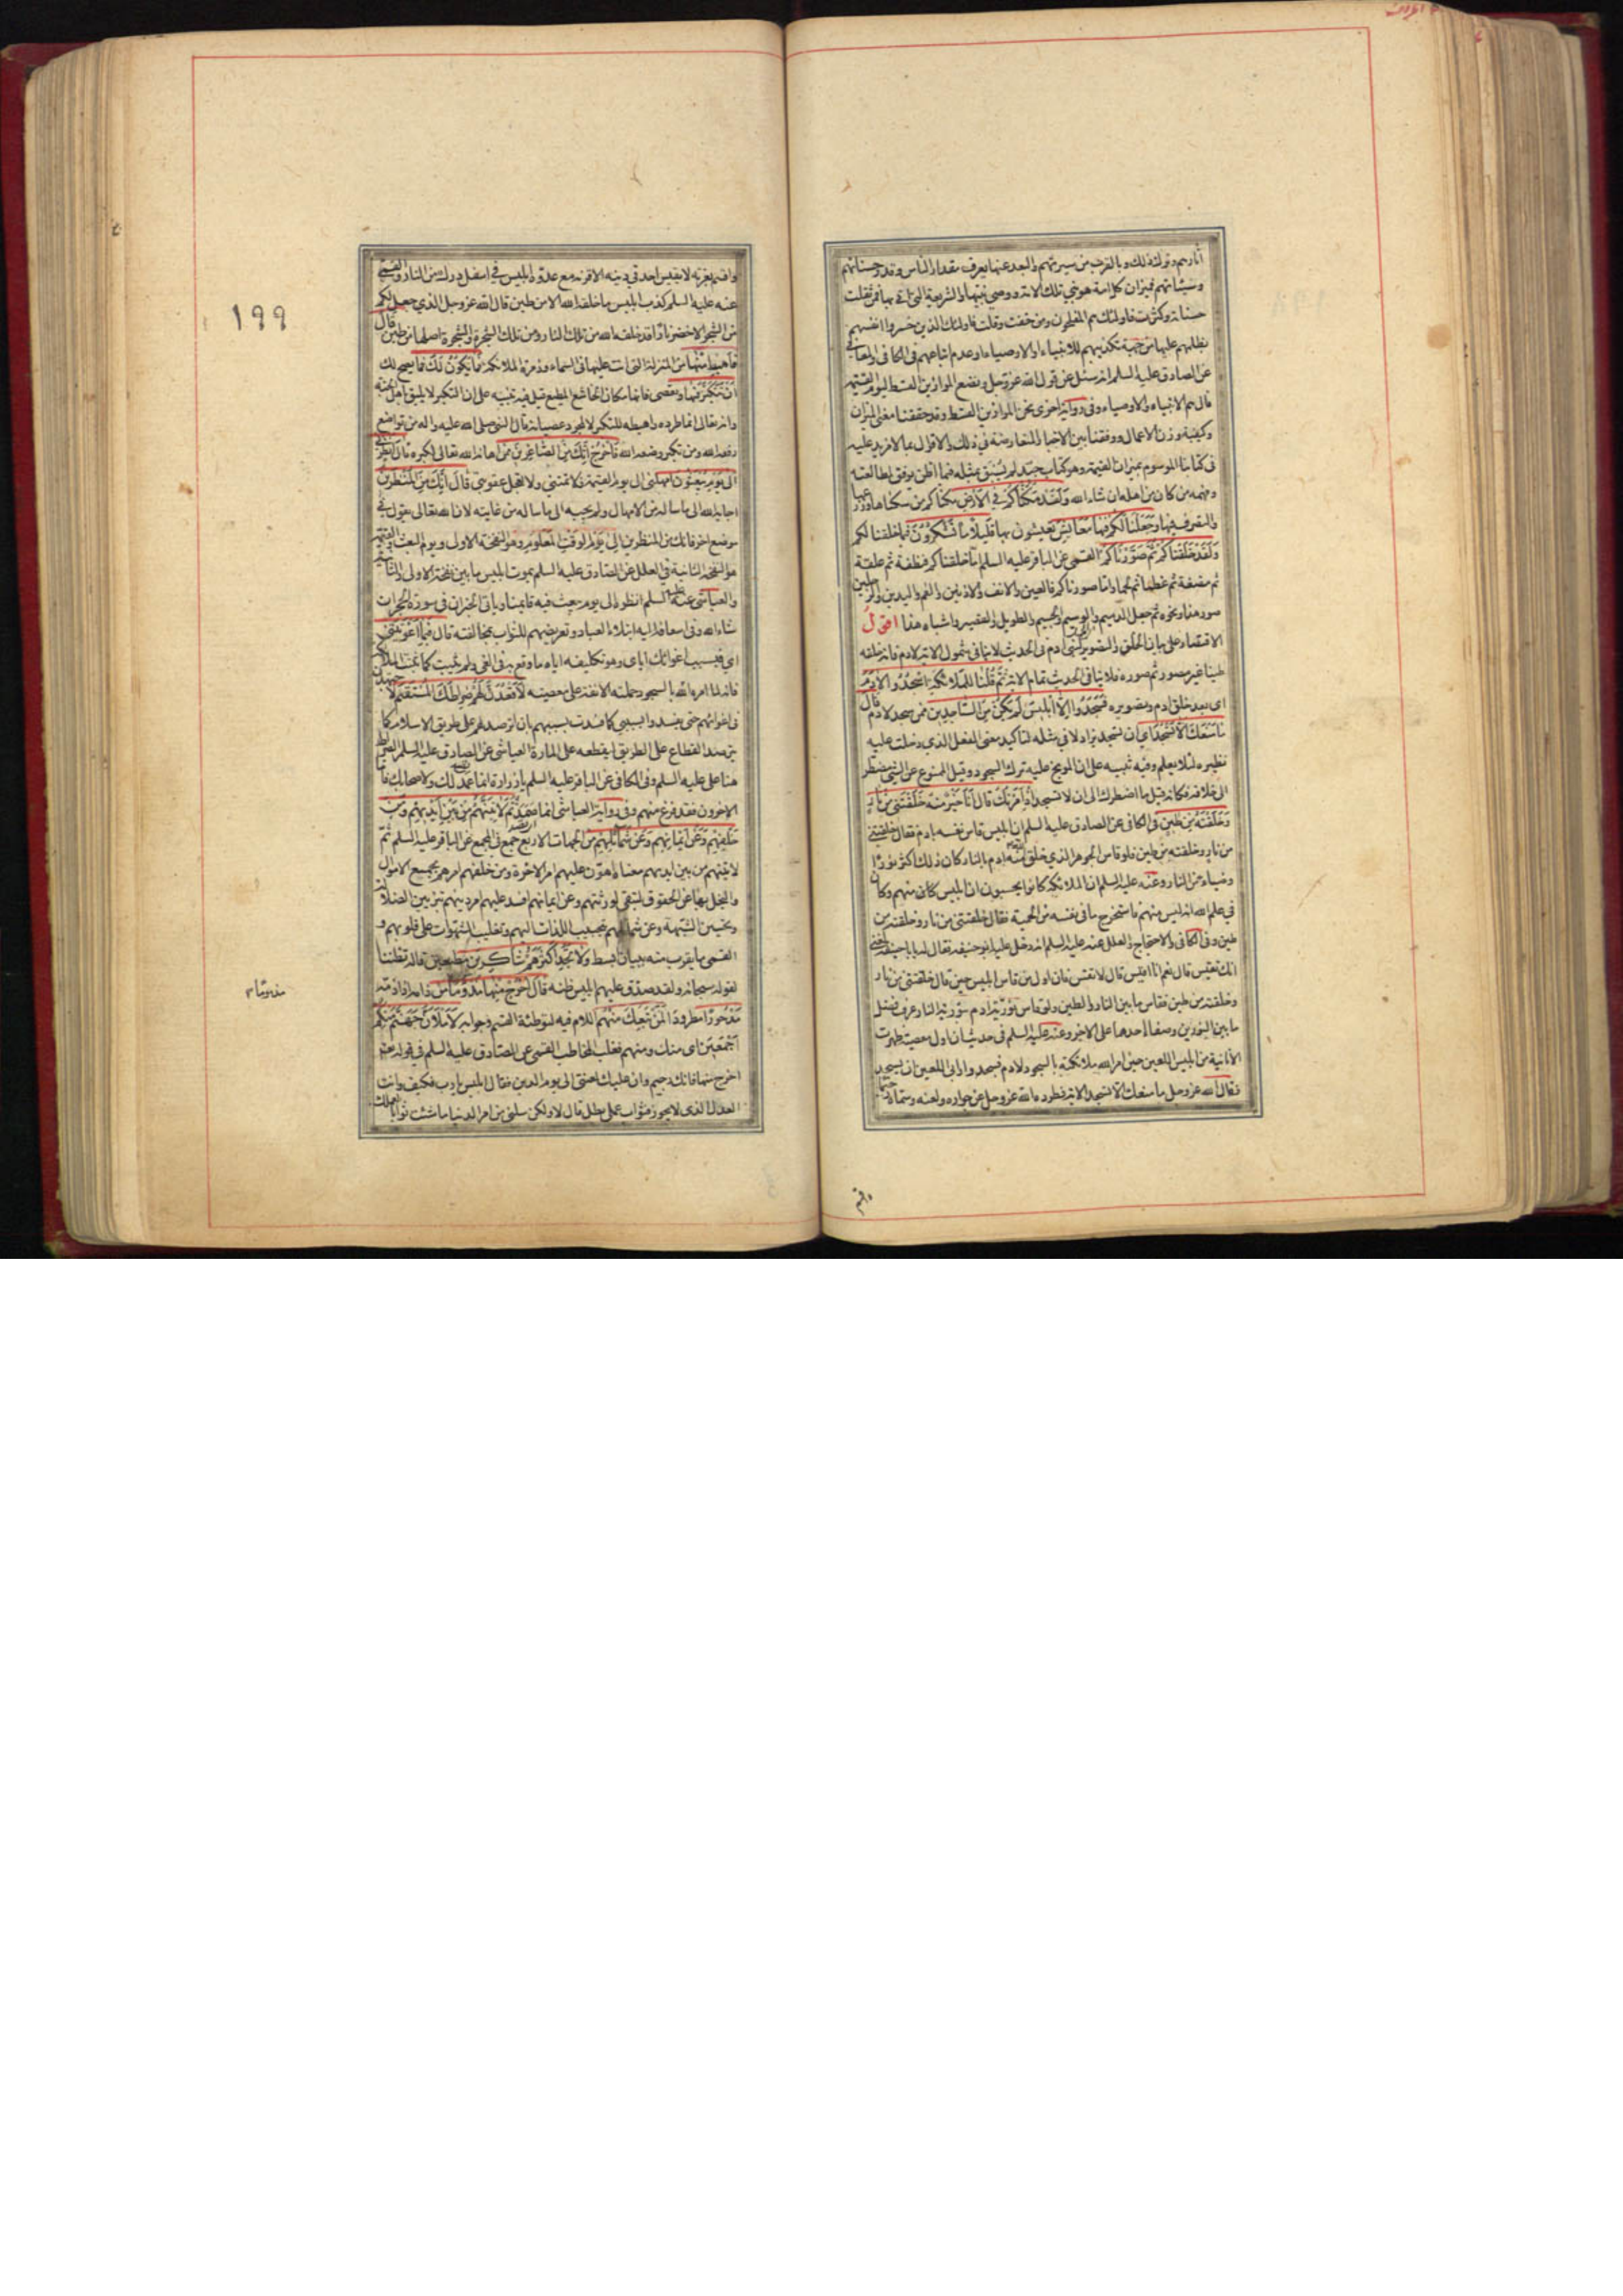 آثارهم وترك ذلك وبالقرب من سيرتهم والبعد عنها يعرف مقدار الناس وقدر حسناتهم
وسيئاتهم فميزان كل امة هو نبي تلك الامة ووصي نبيها والشريعة التي اتى بها فمن ثقلت
حسناته وكثرت فاولئك هم المفلحون ومن خفت وقلت فاولئك الذين خسروا انفسهم
بظلمهم عليها من جهة تكذيبهم للانبياء والاوصياء او عدم اتباعهم في الكافي والمعاني
عن الصادق عليه السلم انه سئل عن قول الله عز وجل ونضع الموازين القسط ليوم القيمة
قال هم الانبياء والاوصياء وفي رواية اخرى نحن الموازين القسط وقد حققنا معنى الميزان
وكيفية وزن الاعمال ووفقنا بين الاخبار المتعارضة في ذلك والاقوال بما لا مزيد عليه
في كتابنا الموسوم بميزان القيمة وهو كتاب جيد لم يسبق بمثله فيما اظن يوفق لمطالعته
وفهمه من كان من اهله ان شاء الله وَلَقَدْ مَكَّنَّاكُمْ فِي الْأَرْضِ مكناكم من سكناها وزرعها
والتصرف فيها وَجَعَلْنَا لَكُمْ فِيهَا مَعَايِشَ تعيشون بها قَلِيلًا مَا تَشْكُرُونَ فيما خلقنا لكم
وَلَقَدْ خَلَقْنَاكُمْ ثُمَّ صَوَّرْنَاكُمْ القمي عن الباقر عليه السلم اما خلقناكم فنطفة ثم علقة
ثم مضغة ثم عظما ثم لحما واما صورناكم فالعين والانف والاذنين والفم واليدين والرجلين
صور هذا ونحوه ثم جعل الدميم والوسيم والجسيم والطويل والقصير واشباه هذا اقول
الاقتصار على بيان الخلق والتصوير لبني ادم في الحديث لا ينافي شمول الاية لادم فانه خلقه
طينا غير مصور ثم صوره فلا ينافي الحديث تمام الاية ثُمَّ قُلْنَا لِلْمَلَائِكَةِ اسْجُدُوا لِآدَمَ
اي بعد خلق ادم وتصويره فَسَجَدُوا إِلَّا إِبْلِيسَ لَمْ يَكُنْ مِنَ السَّاجِدِينَ ممن سجد لادم قال
مَا مَنَعَكَ أَلَّا تَسْجُدَ اي ان تسجد يزاد لا في مثله لتأكيد معنى الفعل الذي دخلت عليه
نظيره لئلا يعلم وفيه تنبيه على ان الموبخ عليه ترك السجود وقيل الممنوع عن الشيء مضطر
الى خلافه فكانه قيل ما اضطرك الى ان لا تسجد إِذْ أَمَرْتُكَ قَالَ أَنَا خَيْرٌ مِنْهُ خَلَقْتَنِي مِنْ نَارٍ
وَخَلَقْتَهُ مِنْ طِينٍ في الكافي عن الصادق عليه السلم ان ابليس قاس نفسه بادم فقال خلقتني
من نار وخلقته من طين فلو قاس الجوهر الذي خلق الله منه ادم بالنار كان ذلك اكثر نورا
وضياء من النار وعنه عليه السلم ان الملائكة كانوا يحسبون ان ابليس كان منهم وكان
في علم الله انه ليس منهم فاستخرج ما في نفسه من الحمية فقال خلقتني من نار وخلقته من
طين وفي الكافي والاحتجاج والعلل عنه عليه السلم انه دخل عليه ابو حنيفة فقال له يا ابا حنيفة بلغني
انك تقيس قال نعم انا اقيس قال لا تقس فان اول من قاس ابليس حين قال خلقتني من نار
وخلقته من طين فقاس ما بين النار والطين ولو قاس نورية ادم بنورية النار عرف فضل
ما بين النورين وصفاء احدهما على الاخر وعنه عليه السلم في حديث ان اول معصية ظهرت
الأنانية من ابليس اللعين حين امر الله ملائكته بالسجود لادم فسجدوا وابى اللعين ان يسجد
فقال الله عز وجل ما منعك الا تسجد الاية فطرده الله عز وجل عن جواره ولعنه وسماه رجيما
واقسم
واقسم بعزته لا يقيس احد في دينه الا قرنه مع عدوه ابليس في اسفل درك من النار والقمي
عنه عليه السلم كذب ابليس ما خلقه الله الا من طين قال الله عز وجل الذي جعل لكم
من الشجر الاخضر نارا قد خلقه الله من تلك النار ومن تلك الشجرة والشجرة اصلها من طين قال
فَاهْبِطْ مِنْهَا من المنزلة التي انت عليها في السماء وزمرة الملائكة فَمَا يَكُونُ لَكَ فما يصح لك
أَنْ تَتَكَبَّرَ فِيهَا وتعصي فانها مكان الخاشع المطيع قيل فيه تنبيه على ان التكبر لا يليق باهل الجنة
وانه تعالى انما طرده واهبطه للتكبر لا لمجرد عصيانه قال النبي صلى الله عليه واله من تواضع
رفعه الله ومن تكبر وضعه الله فَاخْرُجْ إِنَّكَ مِنَ الصَّاغِرِينَ ممن اهانه الله تعالى لكبره قَالَ أَنْظِرْنِي
إِلَى يَوْمِ يُبْعَثُونَ امهلني الى يوم القيمة فلا تمتني ولا تعجل عقوبتي قَالَ إِنَّكَ مِنَ الْمُنْظَرِينَ
اجابه الله الى ما سأله من الامهال ولم يجبه الى ما سأله من غايته لان الله تعالى يقول في
موضع اخر فانك من المنظرين الى يوم الوقت المعلوم وهو النفخة الاولى ويوم البعث والقيمة
هو النفخة الثانية في العلل عن الصادق عليه السلم يموت ابليس ما بين نفخة الاولى والثانية
والعياشي عنه عليه السلم انظره الى يوم يبعث فيه قائمنا ويأتي الخبران في سورة الحجر ان
شاء الله وفي اسعافه اليه ابتلاء العباد وتعريضهم للثواب بمخالفته قال فَبِمَا أَغْوَيْتَنِي
اي فبسبب اغوائك اياي وهو تكليفه اياه ما وقع به في الغي ولم يثبت كما ثبت الملائكة
فانه لما امره الله بالسجود حملته الانفة على معصيته لَأَقْعُدَنَّ لَهُمْ صِرَاطَكَ الْمُسْتَقِيمَ لاجتهدن
في اغوائهم حتى يفسدوا بسببي كما فسدت بسببهم بان اترصد لهم على طريق الاسلام كما
يترصد القطاع على الطريق ليقطعه على المارة العياشي عن الصادق عليه السلم الصراط
هنا علي عليه السلم وفي الكافي عن الباقر عليه السلم يا زرارة انما عمد لك ولاصحابك فاما
الاخرون فقد فرغ منهم وفي رواية العياشي انما صمد ثُمَّ لَآتِيَنَّهُمْ مِنْ بَيْنِ أَيْدِيهِمْ وَمِنْ
خَلْفِهِمْ وَعَنْ أَيْمَانِهِمْ وَعَنْ شَمَائِلِهِمْ من الجهات الاربع جمع في المجمع عن الباقر عليه السلم ثم
لاتينهم من بين ايديهم معناه اهون عليهم امر الاخرة ومن خلفهم امرهم بجمع الاموال
والبخل بها عن الحقوق لتبقى لورثتهم وعن ايمانهم افسد عليهم امر دينهم بتزيين الضلالة
وتحسين الشبهة وعن شمائلهم بتحبيب اللذات اليهم وتغليب الشهوات على قلوبهم و
القمي ما يقرب منه ببيان ابسط وَلَا تَجِدُ أَكْثَرَهُمْ شَاكِرِينَ مطيعين قاله تظننا
لقوله سبحانه ولقد صدق عليهم ابليس ظنه قَالَ اخْرُجْ مِنْهَا مَذْءُومًا من ذامه اذا ذمه
مَدْحُورًا مطرودا لَمَنْ تَبِعَكَ مِنْهُمْ اللام فيه لتوطئة القسم وجوابه لَأَمْلَأَنَّ جَهَنَّمَ مِنْكُمْ
أَجْمَعِينَ اي منك ومنهم فغلب المخاطب القمي عن الصادق عليه السلم في قوله تعالى
اخرج منها فانك رجيم وان عليك لعنتي الى يوم الدين فقال ابليس يا رب فكيف وانت
العدل الذي لا يجوز فثواب عملي بطل قال لا ولكن سلني من امر الدنيا ما شئت ثوابا لعملك
١٩٩
مذموما